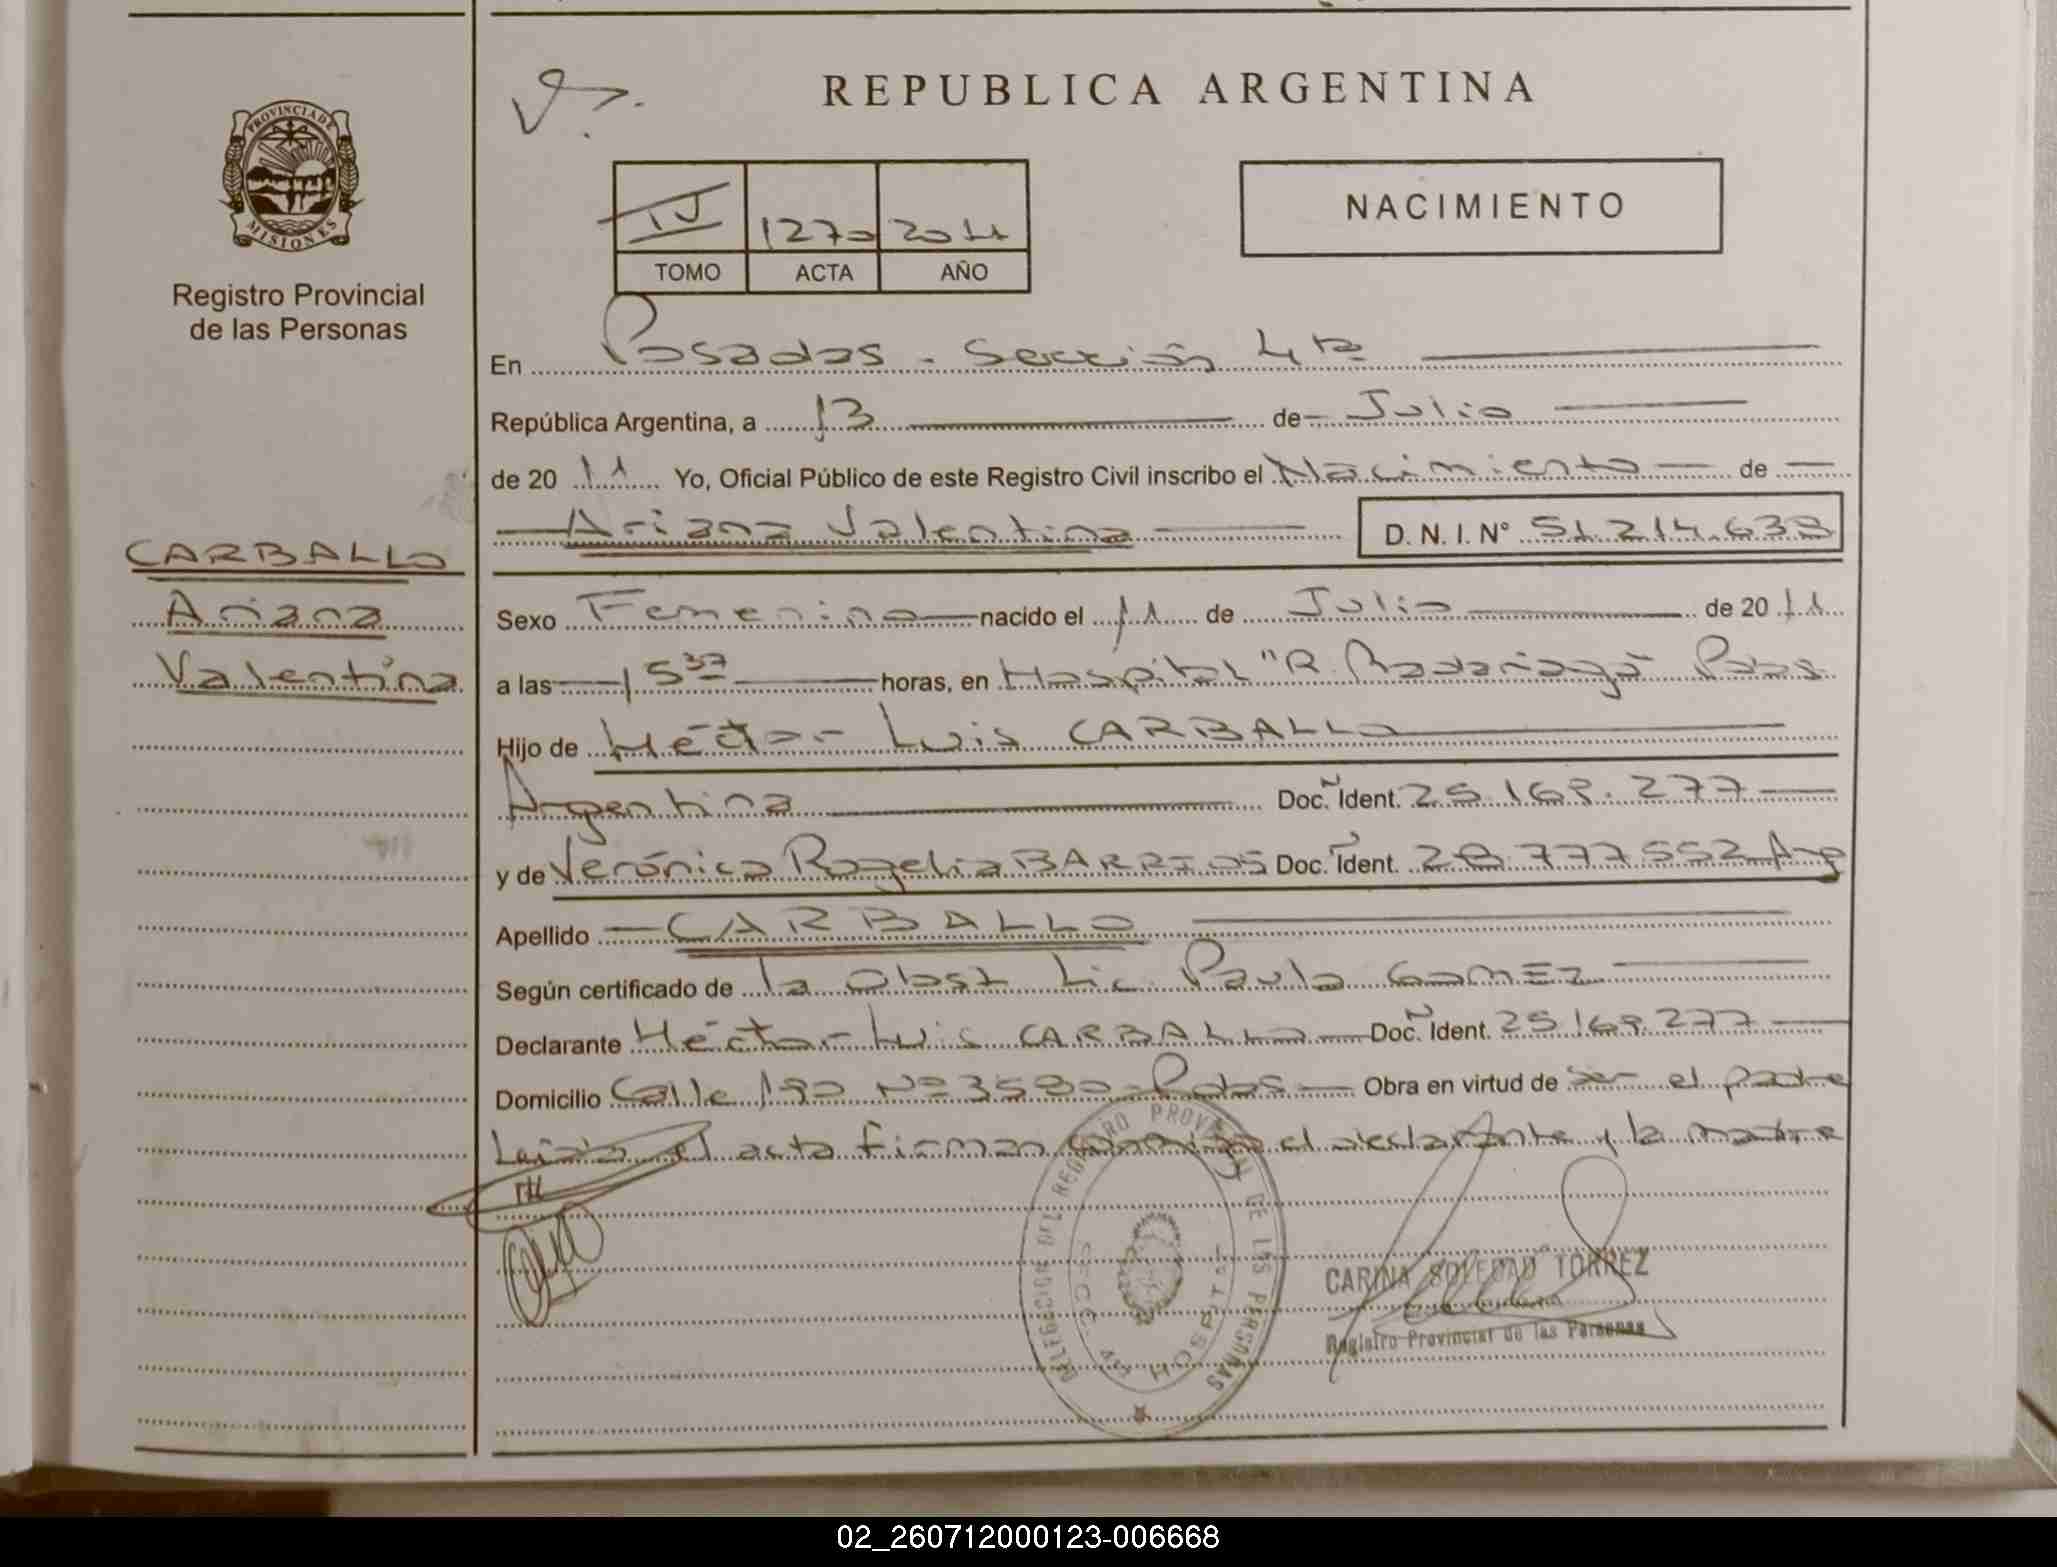 REPUBLICA ARGENTINA
PROVINCIA DE
MISIONES
Registro Provincial
de las Personas
IV 1270 2011
TOMO ACTA AÑO
NACIMIENTO
En Posadas - Sección 4ta
República Argentina, a 13 de Julio
de 2011 Yo, Oficial Público de este Registro Civil inscribo el Nacimiento de
Ariana Valentina D. N. I. N° 51.214.638
CARBALLO
Ariana
Valentina
Sexo Femenino nacido el 11 de Julio de 2011
a las 15 37 horas, en Hospital "R. Madariaga" Pdas.
Hijo de Héctor Luis CARBALLO
Argentina Doc. Ident. 25.169.277
y de Verónica Rogelia BARRIOS Doc. Ident. 28.777.552 Arg
Apellido CARBALLO
Según certificado de la Obst Lic. Paula GomEz
Declarante Héctor Luis CARBALLO Doc. Ident. 25.169.277
Domicilio Calle 190 N° 3580 - Pdas Obra en virtud de ser el padre
Leída el acta firman conmigo el declarante y la madre
DELEGACION DEL REGISTRO PROVINCIAL DE LAS PERSONAS
HOSPITAL
CARINA SOLEDAD TORREZ
Registro Provincial de las Personas
02_260712000123-006668